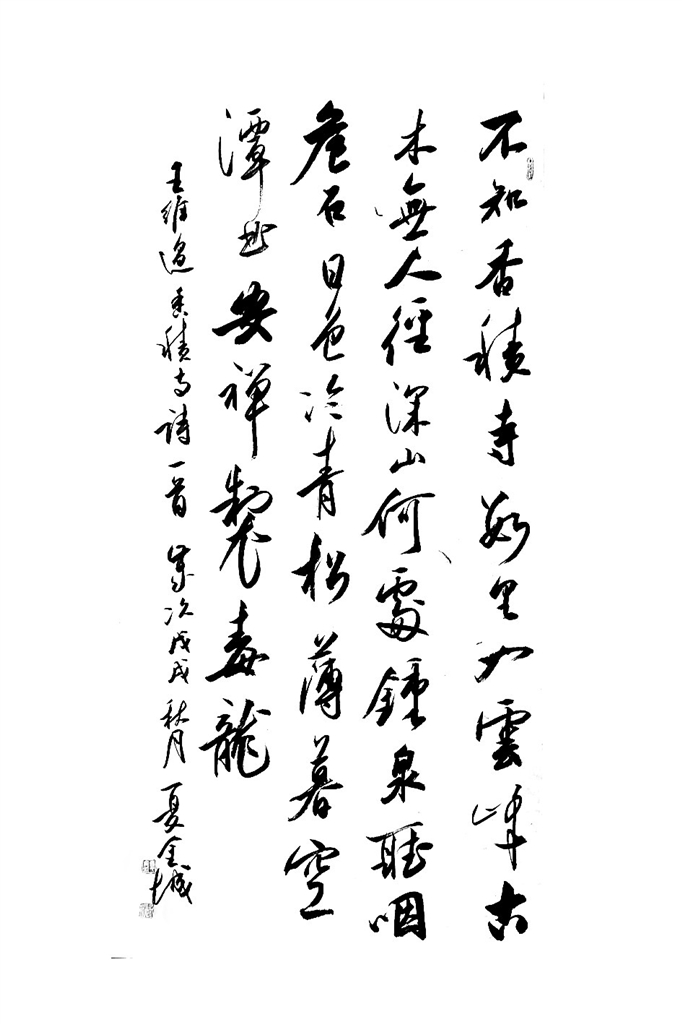 不知香積寺數里入雲峰古
木無人徑深山何處鍾泉聽咽
危石日色冷青松薄暮空
潭曲安禪製毒龍
王維過香積寺詩一首 歲次戊戌秋月 夏金城